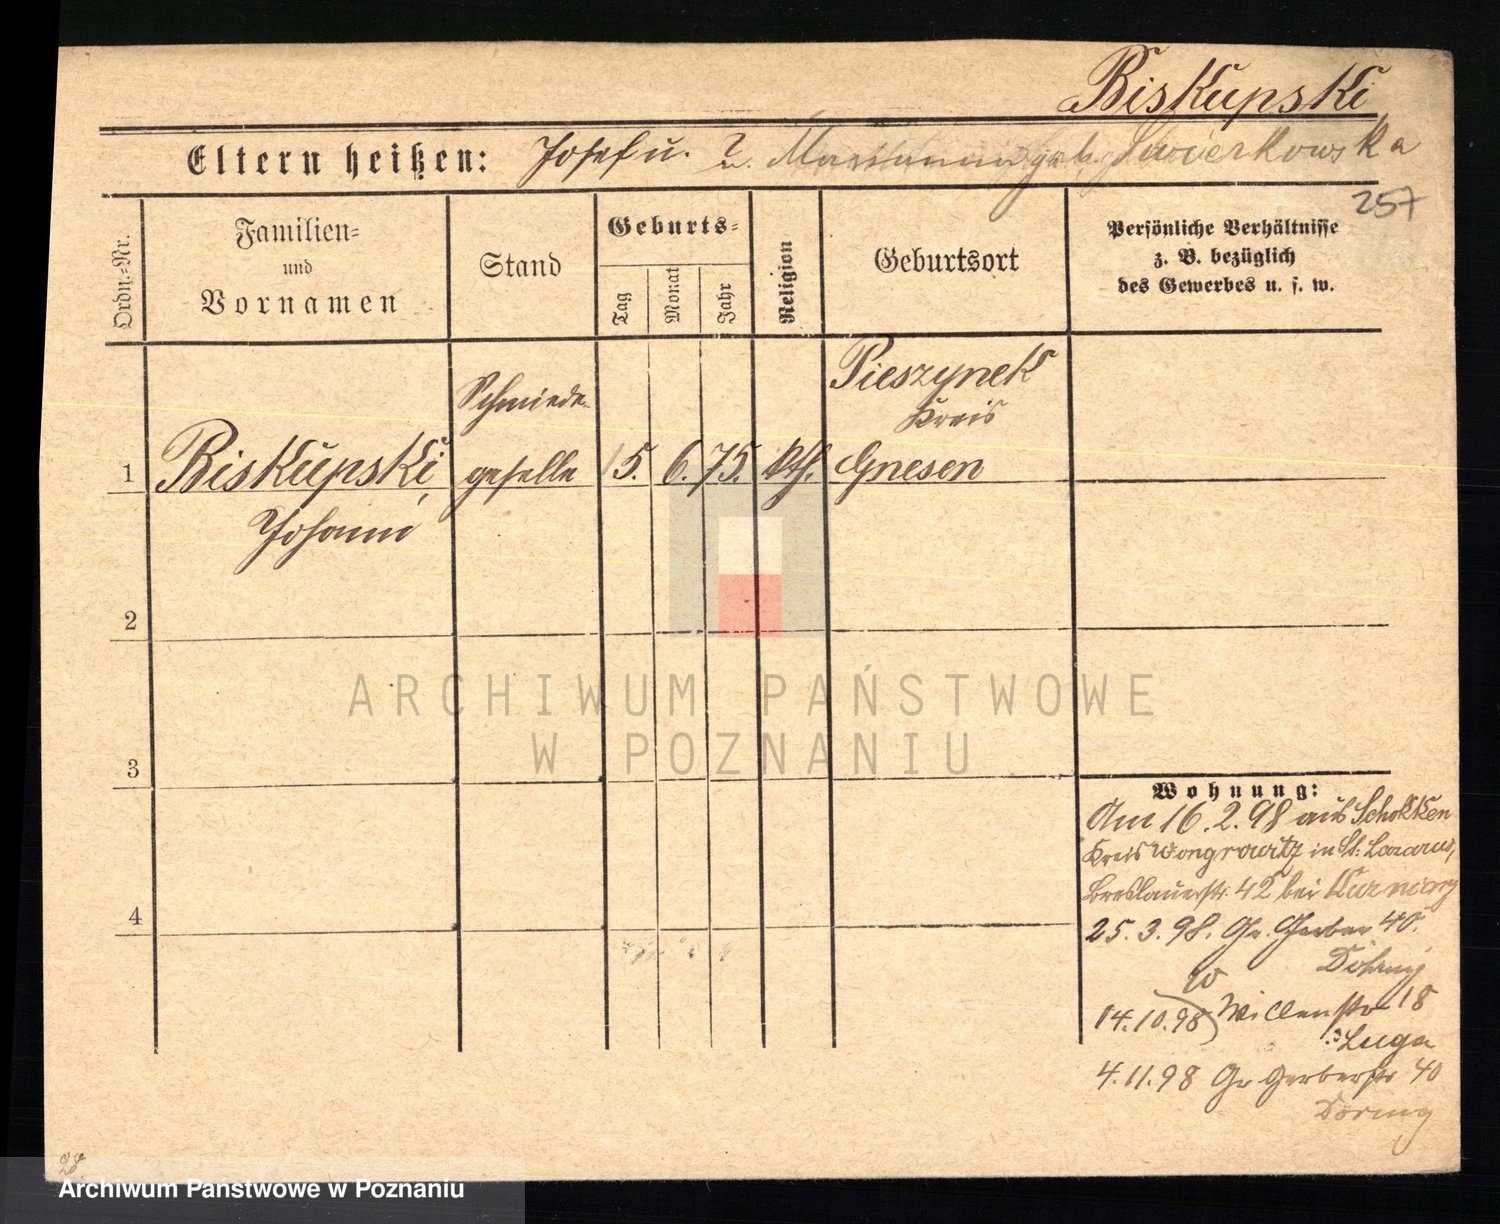 Biskupski
Eltern heißen: Josef u. ? u. Marianna geb. Swierkowska
257
Ordn.-Nr.
Familien-
und
Vornamen
Stand
Geburts-
Tag
Monat
Jahr
Religion
Geburtsort
Persönliche Verhältnisse
z. B. bezüglich
des Gewerbes u. s. w.
1
Biskupski,
Johann
Schmiede-
geselle
5. 6. 75. kth.
Pieszynek
Kreis
Gnesen
2
3
4
ARCHIWUM PAŃSTWOWE
W POZNANIU
Wohnung:
Am 16.2.98 aus Schokken
Kreis Wongrowitz in St. Lazarus,
Breslauerstr. 42 bei
25.3.98. Gr. Gerber 40.
Döring
14.10.98 18
Luga
4.11.98 Gr Gerberstr 40
Döring
28
Archiwum Państwowe w Poznaniu